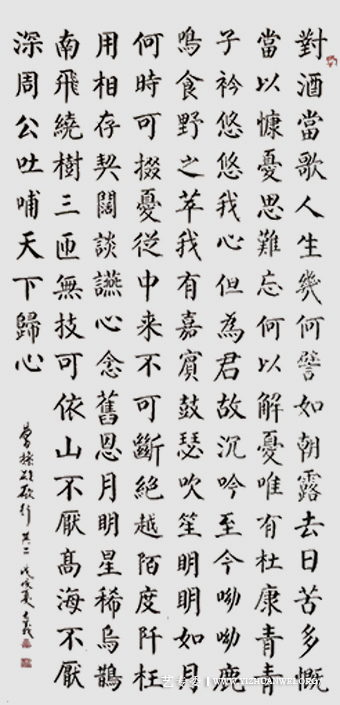 對酒當歌人生幾何譬如朝露去日苦多慨
當以慷憂思難忘何以解憂唯有杜康青青
子衿悠悠我心但為君故沉吟至今呦呦鹿
鳴食野之萃我有嘉賓鼓瑟吹笙明明如月
何時可掇憂從中来不可斷絕越陌度阡枉
用相存契闊談讌心念舊恩月明星稀烏鵲
南飛繞樹三匝無技可依山不厭高海不厭
深周公吐哺天下歸心
曹操短歌行其二戊戌夏
WWW.YIZHUANWEI.ORG